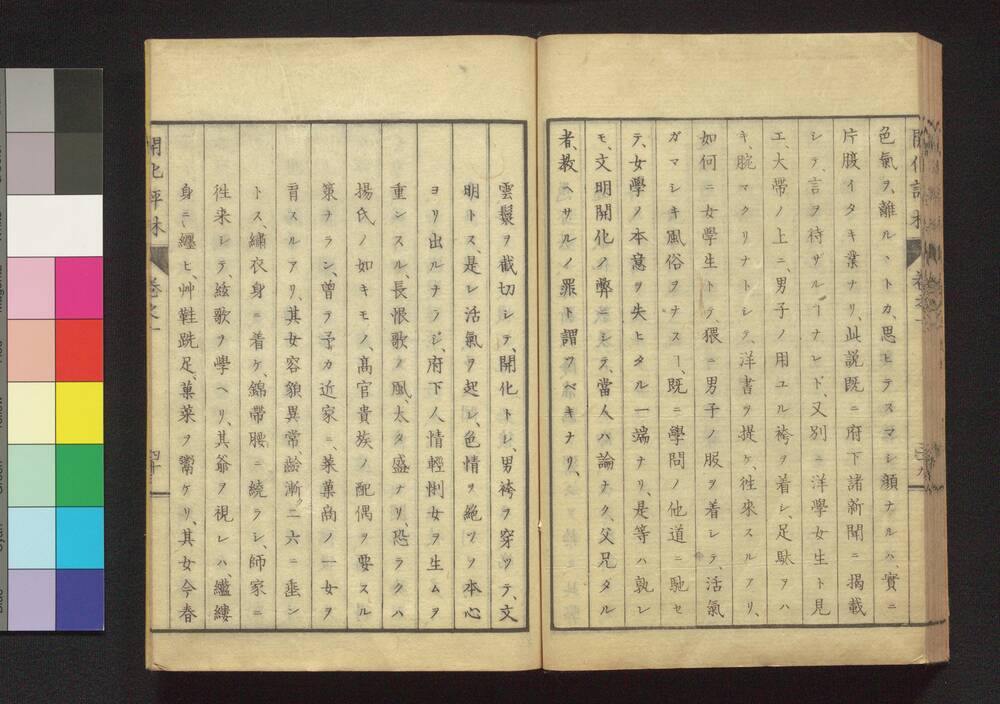 色氣ヲ、離ルヽトカ、思ヒテスマシ顔ナルハ、實ニ
片腹イタキ業ナリ、此説既ニ府下諸新聞ニ揭載
シテ、言ヲ待ザルーナレド、又別ニ洋學女生ト見
エ、大帶ノ上ニ、男子ノ用ユル袴ヲ着シ、足駄ヲハ
キ、腕マクリナトシテ、洋書ヲ提ケ、徃來スルアリ、
如何ニ女學生トテ、猥ニ男子ノ服ヲ着シテ、活氣
ガマシキ風俗ヲナスー、既ニ學問ノ他道ニ馳セ
テ、女學ノ本意ヲ失ヒタル一端ナリ、是等ハ孰レ
モ、文明開化ノ弊ニシテ、當人ハ論ナク、父兄タル
者、教ヘサルノ罪ト謂ツベキナリ、
雲鬟ヲ截切シテ、開化トシ、男袴ヲ穿ツテ、文
明トス、是レ活氣ヲ起シ、色情ヲ絶ツノ本心
ヨリ出ルナラジ、府下人情輕惻女ヲ生ムヲ
重ンスル、長恨歌ノ風、太タ盛ナリ、恐ラクハ
揚氏ノ如キモノ、髙官貴族ノ配偶ヲ要スル
策ナラン、曾テ予カ近家ニ、菜菓商ノ一女ヲ
育スルアリ、其女容貌異常、齡漸ク二六ニ埀ン
トス、繡衣身ニ着ケ、錦帶腰ニ繞ラシ、師家ニ
徃来シテ、絃歌ヲ學ヘリ、其爺ヲ視レハ、繿縷
身ニ纒ヒ、艸鞋跣足、菓菜ヲ鬻ケリ、其女今春
開化評林